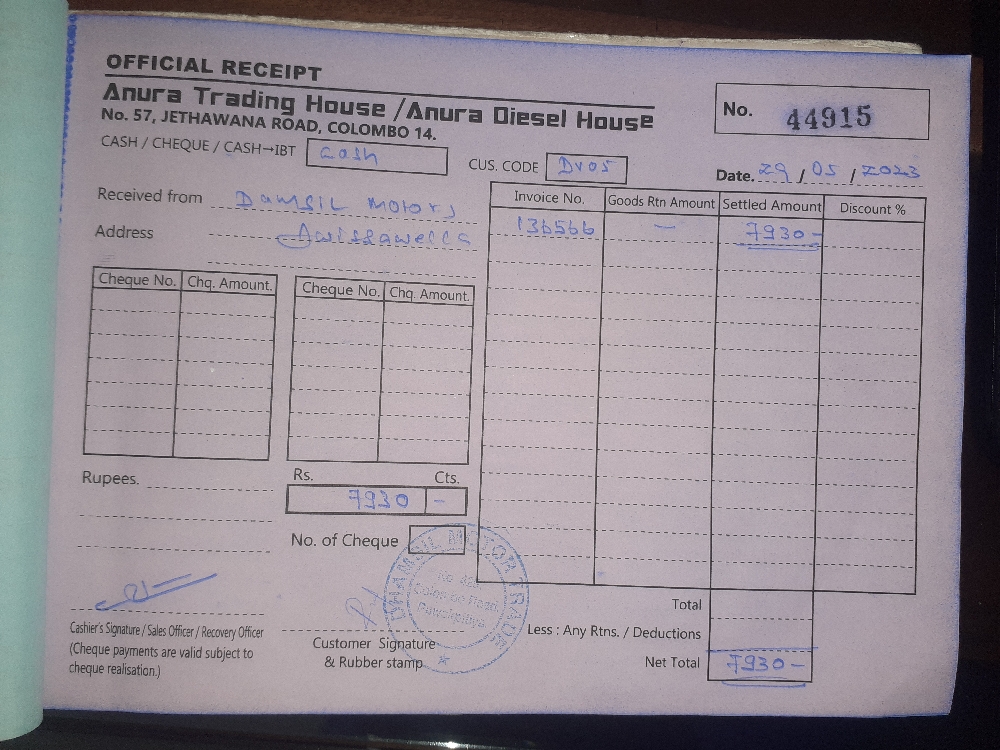 OFFICIAL RECEIPT
Anura Trading House /Anura Diesel House
No. 57, JETHAWANA ROAD, COLOMBO 14.
No. 44915
CASH / CHEQUE / CASH→IBT cash
CUS. CODE DV05
Date. 29 / 05 / 2023
Received from Damsil Motors
Address Avissawella
Invoice No. Goods Rtn Amount Settled Amount Discount %
136566 — 7930-
Cheque No. Chq. Amount. Cheque No. Chq. Amount.
Rupees.
Rs. Cts.
7930 -
No. of Cheque
DHAMSIL MOTOR TRADE
Cashier's Signature / Sales Officer / Recovery Officer
(Cheque payments are valid subject to
cheque realisation.)
Customer Signature
& Rubber stamp
Total
Less : Any Rtns. / Deductions
Net Total 7930-